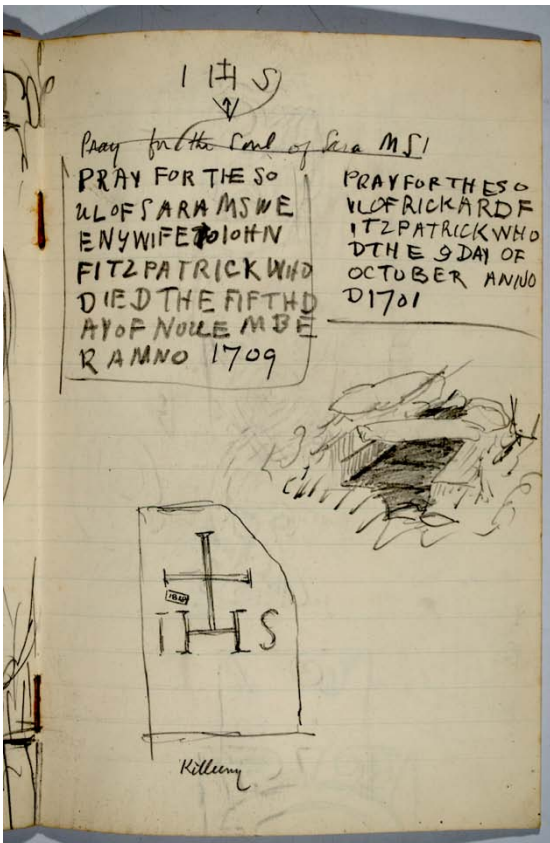 I H S
Pray for the Soul of Sara MSI
PRAY FOR THE SO
ULOFSARA MSWE
ENYWIFETOIOHN
FITZPATRICKWHO
DIED THE FIFTHD
AYOF NOUEMBE
R AMNO 1709
PRAYFORTHESO
VLOFRICKARDF
ITZPATRICKWHO
DTHE 9 DAY OF
OCTOBER ANNO
D1701
IHS
Killeeny